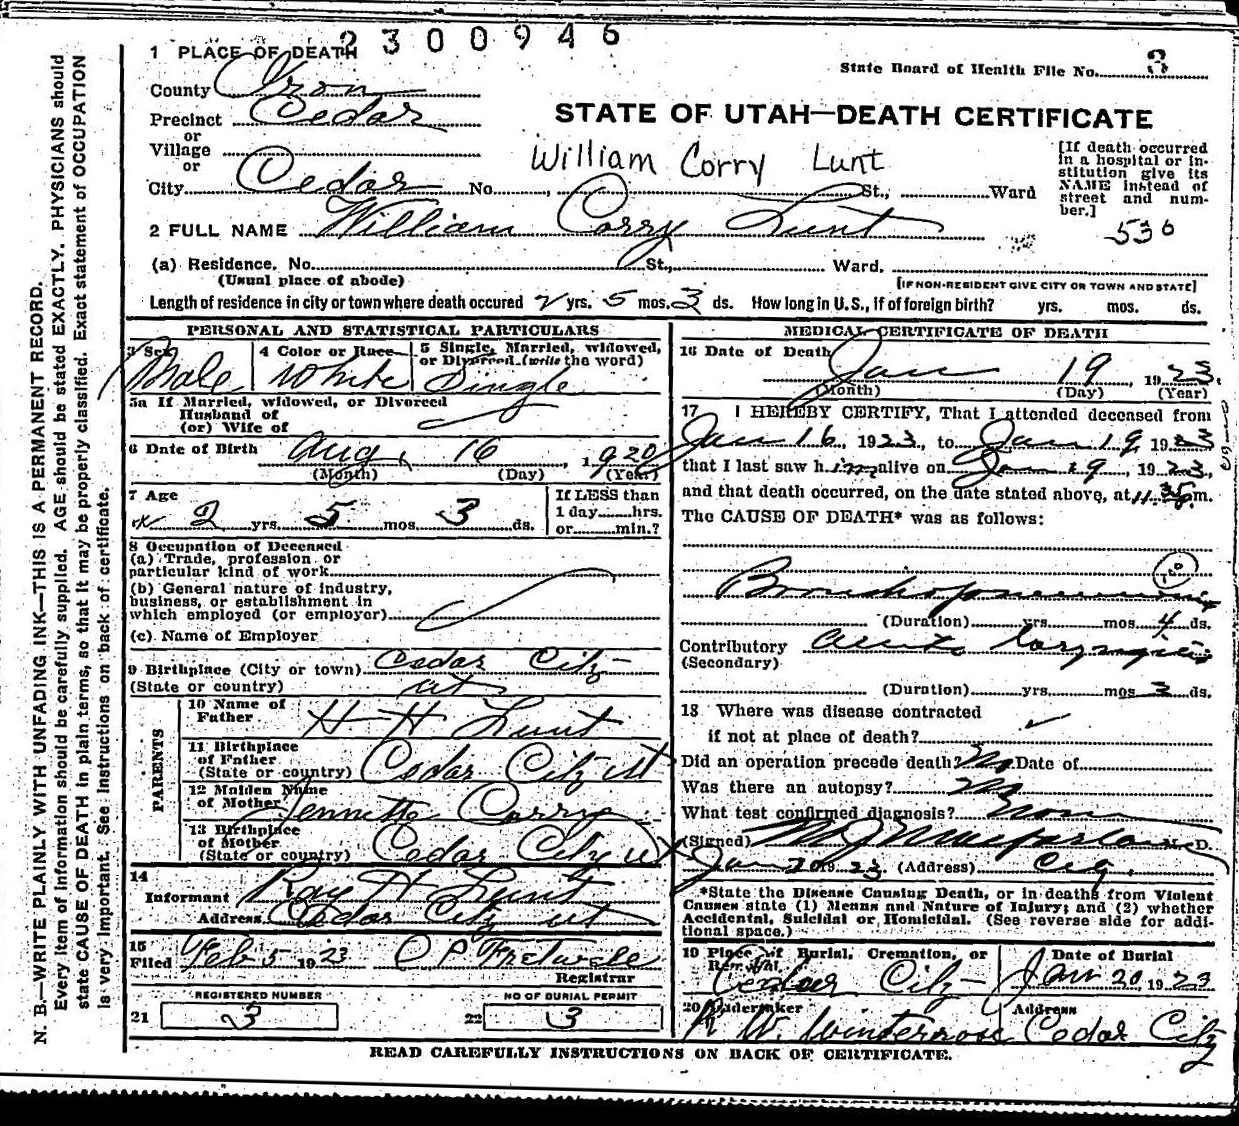 2300946
1 PLACE OF DEATH
State Board of Health File No. 3
County Iron
Precinct Cedar
STATE OF UTAH—DEATH CERTIFICATE
or
Village
or
William Corry Lunt
City Cedar No. St., Ward
[If death occurred in a hospital or institution give its NAME instead of street and number.]
2 FULL NAME William Corry Lunt
530
(a) Residence. No. St., Ward.
(Usual place of abode)
[IF NON-RESIDENT GIVE CITY OR TOWN AND STATE]
Length of residence in city or town where death occured 2 yrs. 5 mos. 3 ds. How long in U.S., if of foreign birth? yrs. mos. ds.
PERSONAL AND STATISTICAL PARTICULARS
3 Sex
Male
4 Color or Race
White
5 Single, Married, widowed,
or Divorced (write the word)
Single
5a If Married, widowed, or Divorced
Husband of
(or) Wife of
6 Date of Birth Aug. 16 1920
(Month) (Day) (Year)
7 Age
2 yrs. 5 mos. 3 ds.
If LESS than
1 day hrs.
or min.?
8 Occupation of Deceased
(a) Trade, profession or
particular kind of work
(b) General nature of industry,
business, or establishment in
which employed (or employer)
(c) Name of Employer
9 Birthplace (City or town) Cedar City
(State or country) ut
PARENTS
10 Name of
Father H H Lunt
11 Birthplace
of Father
(State or country) Cedar City ut
12 Maiden Name
of Mother Jennette Corry
13 Birthplace
of Mother
(State or country) Cedar City ut
14
Informant Ray H Lunt
Address Cedar City ut
15
Filed Feb 5 1923 C P Fretwell
Registrar
REGISTERED NUMBER
21 3
NO OF BURIAL PERMIT
22 3
MEDICAL CERTIFICATE OF DEATH
16 Date of Death
Jan 19, 1923.
(Month) (Day) (Year)
17 I HEREBY CERTIFY, That I attended deceased from
Jan 16, 1923, to Jan 19 1923
that I last saw him alive on Jan 19, 1923,
and that death occurred, on the date stated above, at 11.35 p.m.
The CAUSE OF DEATH* was as follows:
Bronchopneumonia
(Duration) yrs. mos. 4 ds.
Contributory acute laryngitis
(Secondary)
(Duration) yrs. mos 3 ds.
18 Where was disease contracted
if not at place of death?
Did an operation precede death? No Date of
Was there an autopsy? No
What test confirmed diagnosis? None
(Signed) M J Macfarlane M. D.
Jan 20 1923 (Address) City.
*State the Disease Causing Death, or in deaths from Violent
Causes state (1) Means and Nature of Injury; and (2) whether
Accidental, Suicidal or Homicidal. (See reverse side for addi-
tional space.)
19 Place of Burial, Cremation, or
Removal
Cedar City
Date of Burial
Jan 20, 1923
20 Undertaker
R W Winterrose
Address
Cedar City
READ CAREFULLY INSTRUCTIONS ON BACK OF CERTIFICATE.
N. B.—WRITE PLAINLY WITH UNFADING INK—THIS IS A PERMANENT RECORD.
Every item of information should be carefully supplied. AGE should be stated EXACTLY. PHYSICIANS should
state CAUSE OF DEATH in plain terms, so that it may be properly classified. Exact statement of OCCUPATION
is very important. See Instructions on back of certificate.